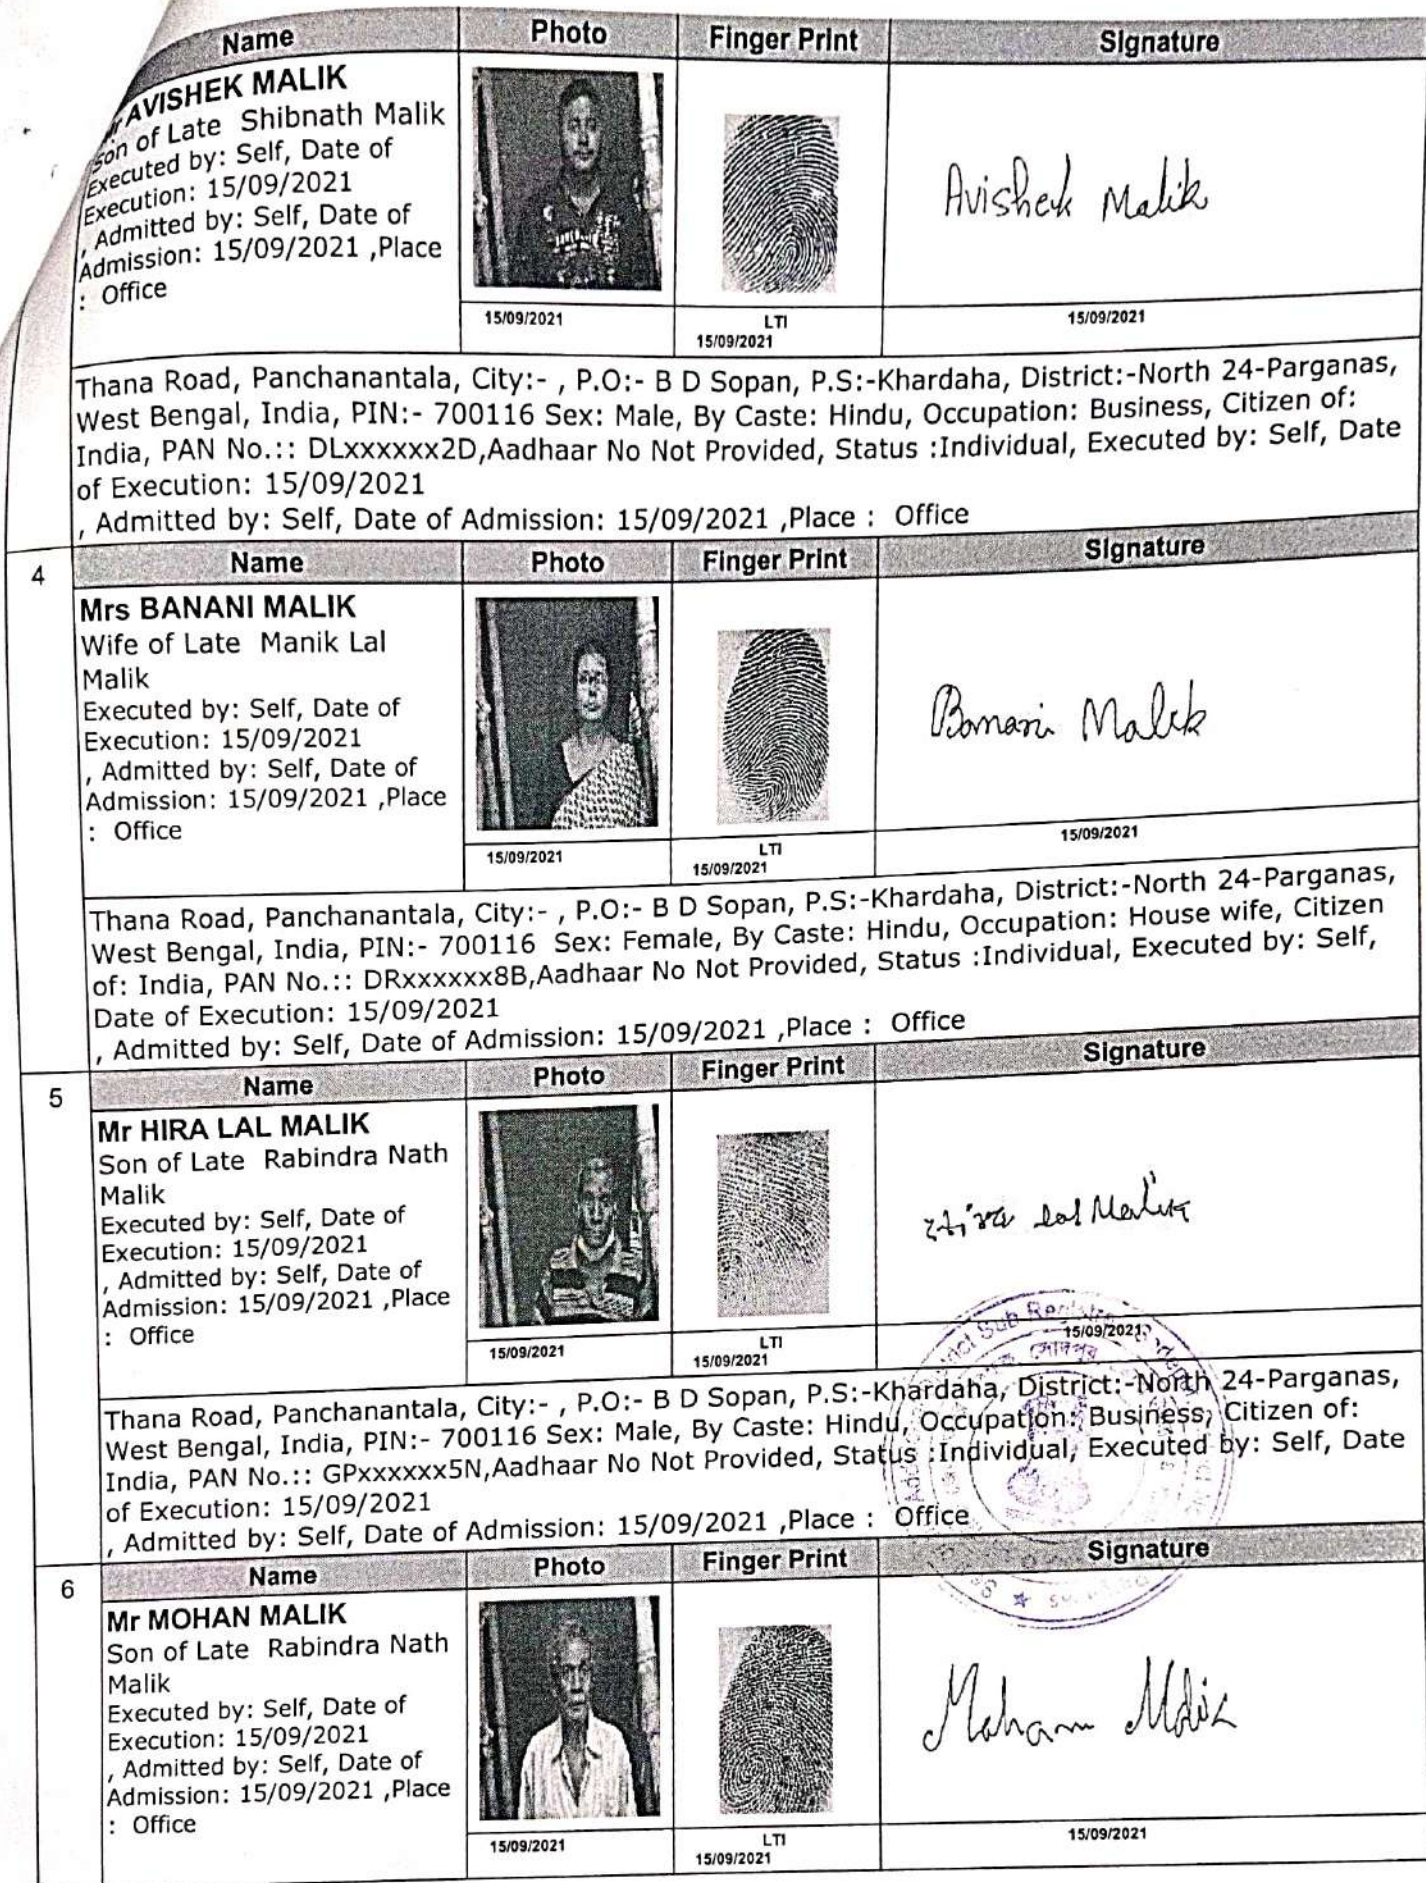 Name Photo Finger Print Signature
Mr AVISHEK MALIK
Son of Late Shibnath Malik
Executed by: Self, Date of
Execution: 15/09/2021
, Admitted by: Self, Date of
Admission: 15/09/2021 ,Place
: Office
Avishek Malik
15/09/2021 LTI 15/09/2021
15/09/2021
Thana Road, Panchanantala, City:- , P.O:- B D Sopan, P.S:-Khardaha, District:-North 24-Parganas,
West Bengal, India, PIN:- 700116 Sex: Male, By Caste: Hindu, Occupation: Business, Citizen of:
India, PAN No.:: DLxxxxxx2D,Aadhaar No Not Provided, Status :Individual, Executed by: Self, Date
of Execution: 15/09/2021
, Admitted by: Self, Date of Admission: 15/09/2021 ,Place : Office
4 Name Photo Finger Print Signature
Mrs BANANI MALIK
Wife of Late Manik Lal
Malik
Executed by: Self, Date of
Execution: 15/09/2021
, Admitted by: Self, Date of
Admission: 15/09/2021 ,Place
: Office
Banani Malik
15/09/2021 LTI 15/09/2021
15/09/2021
Thana Road, Panchanantala, City:- , P.O:- B D Sopan, P.S:-Khardaha, District:-North 24-Parganas,
West Bengal, India, PIN:- 700116 Sex: Female, By Caste: Hindu, Occupation: House wife, Citizen
of: India, PAN No.:: DRxxxxxx8B,Aadhaar No Not Provided, Status :Individual, Executed by: Self,
Date of Execution: 15/09/2021
, Admitted by: Self, Date of Admission: 15/09/2021 ,Place : Office
5 Name Photo Finger Print Signature
Mr HIRA LAL MALIK
Son of Late Rabindra Nath
Malik
Executed by: Self, Date of
Execution: 15/09/2021
, Admitted by: Self, Date of
Admission: 15/09/2021 ,Place
: Office
lal Malik
15/09/2021 LTI 15/09/2021
15/09/2021
Thana Road, Panchanantala, City:- , P.O:- B D Sopan, P.S:-Khardaha, District:-North 24-Parganas,
West Bengal, India, PIN:- 700116 Sex: Male, By Caste: Hindu, Occupation: Business, Citizen of:
India, PAN No.:: GPxxxxxx5N,Aadhaar No Not Provided, Status :Individual, Executed by: Self, Date
of Execution: 15/09/2021
, Admitted by: Self, Date of Admission: 15/09/2021 ,Place : Office
6 Name Photo Finger Print Signature
Mr MOHAN MALIK
Son of Late Rabindra Nath
Malik
Executed by: Self, Date of
Execution: 15/09/2021
, Admitted by: Self, Date of
Admission: 15/09/2021 ,Place
: Office
Mohan Malik
15/09/2021 LTI 15/09/2021
15/09/2021